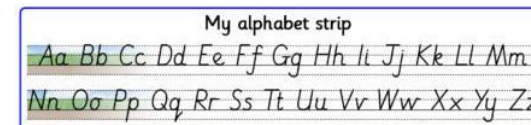 My alphabet strip
Aa Bb Cc Dd Ee Ff Gg Hh Ii Jj Kk Ll Mm
Nn Oo Pp Qq Rr Ss Tt Uu Vv Ww Xx Yy Zz